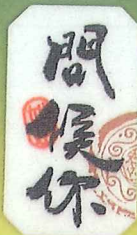 問候你